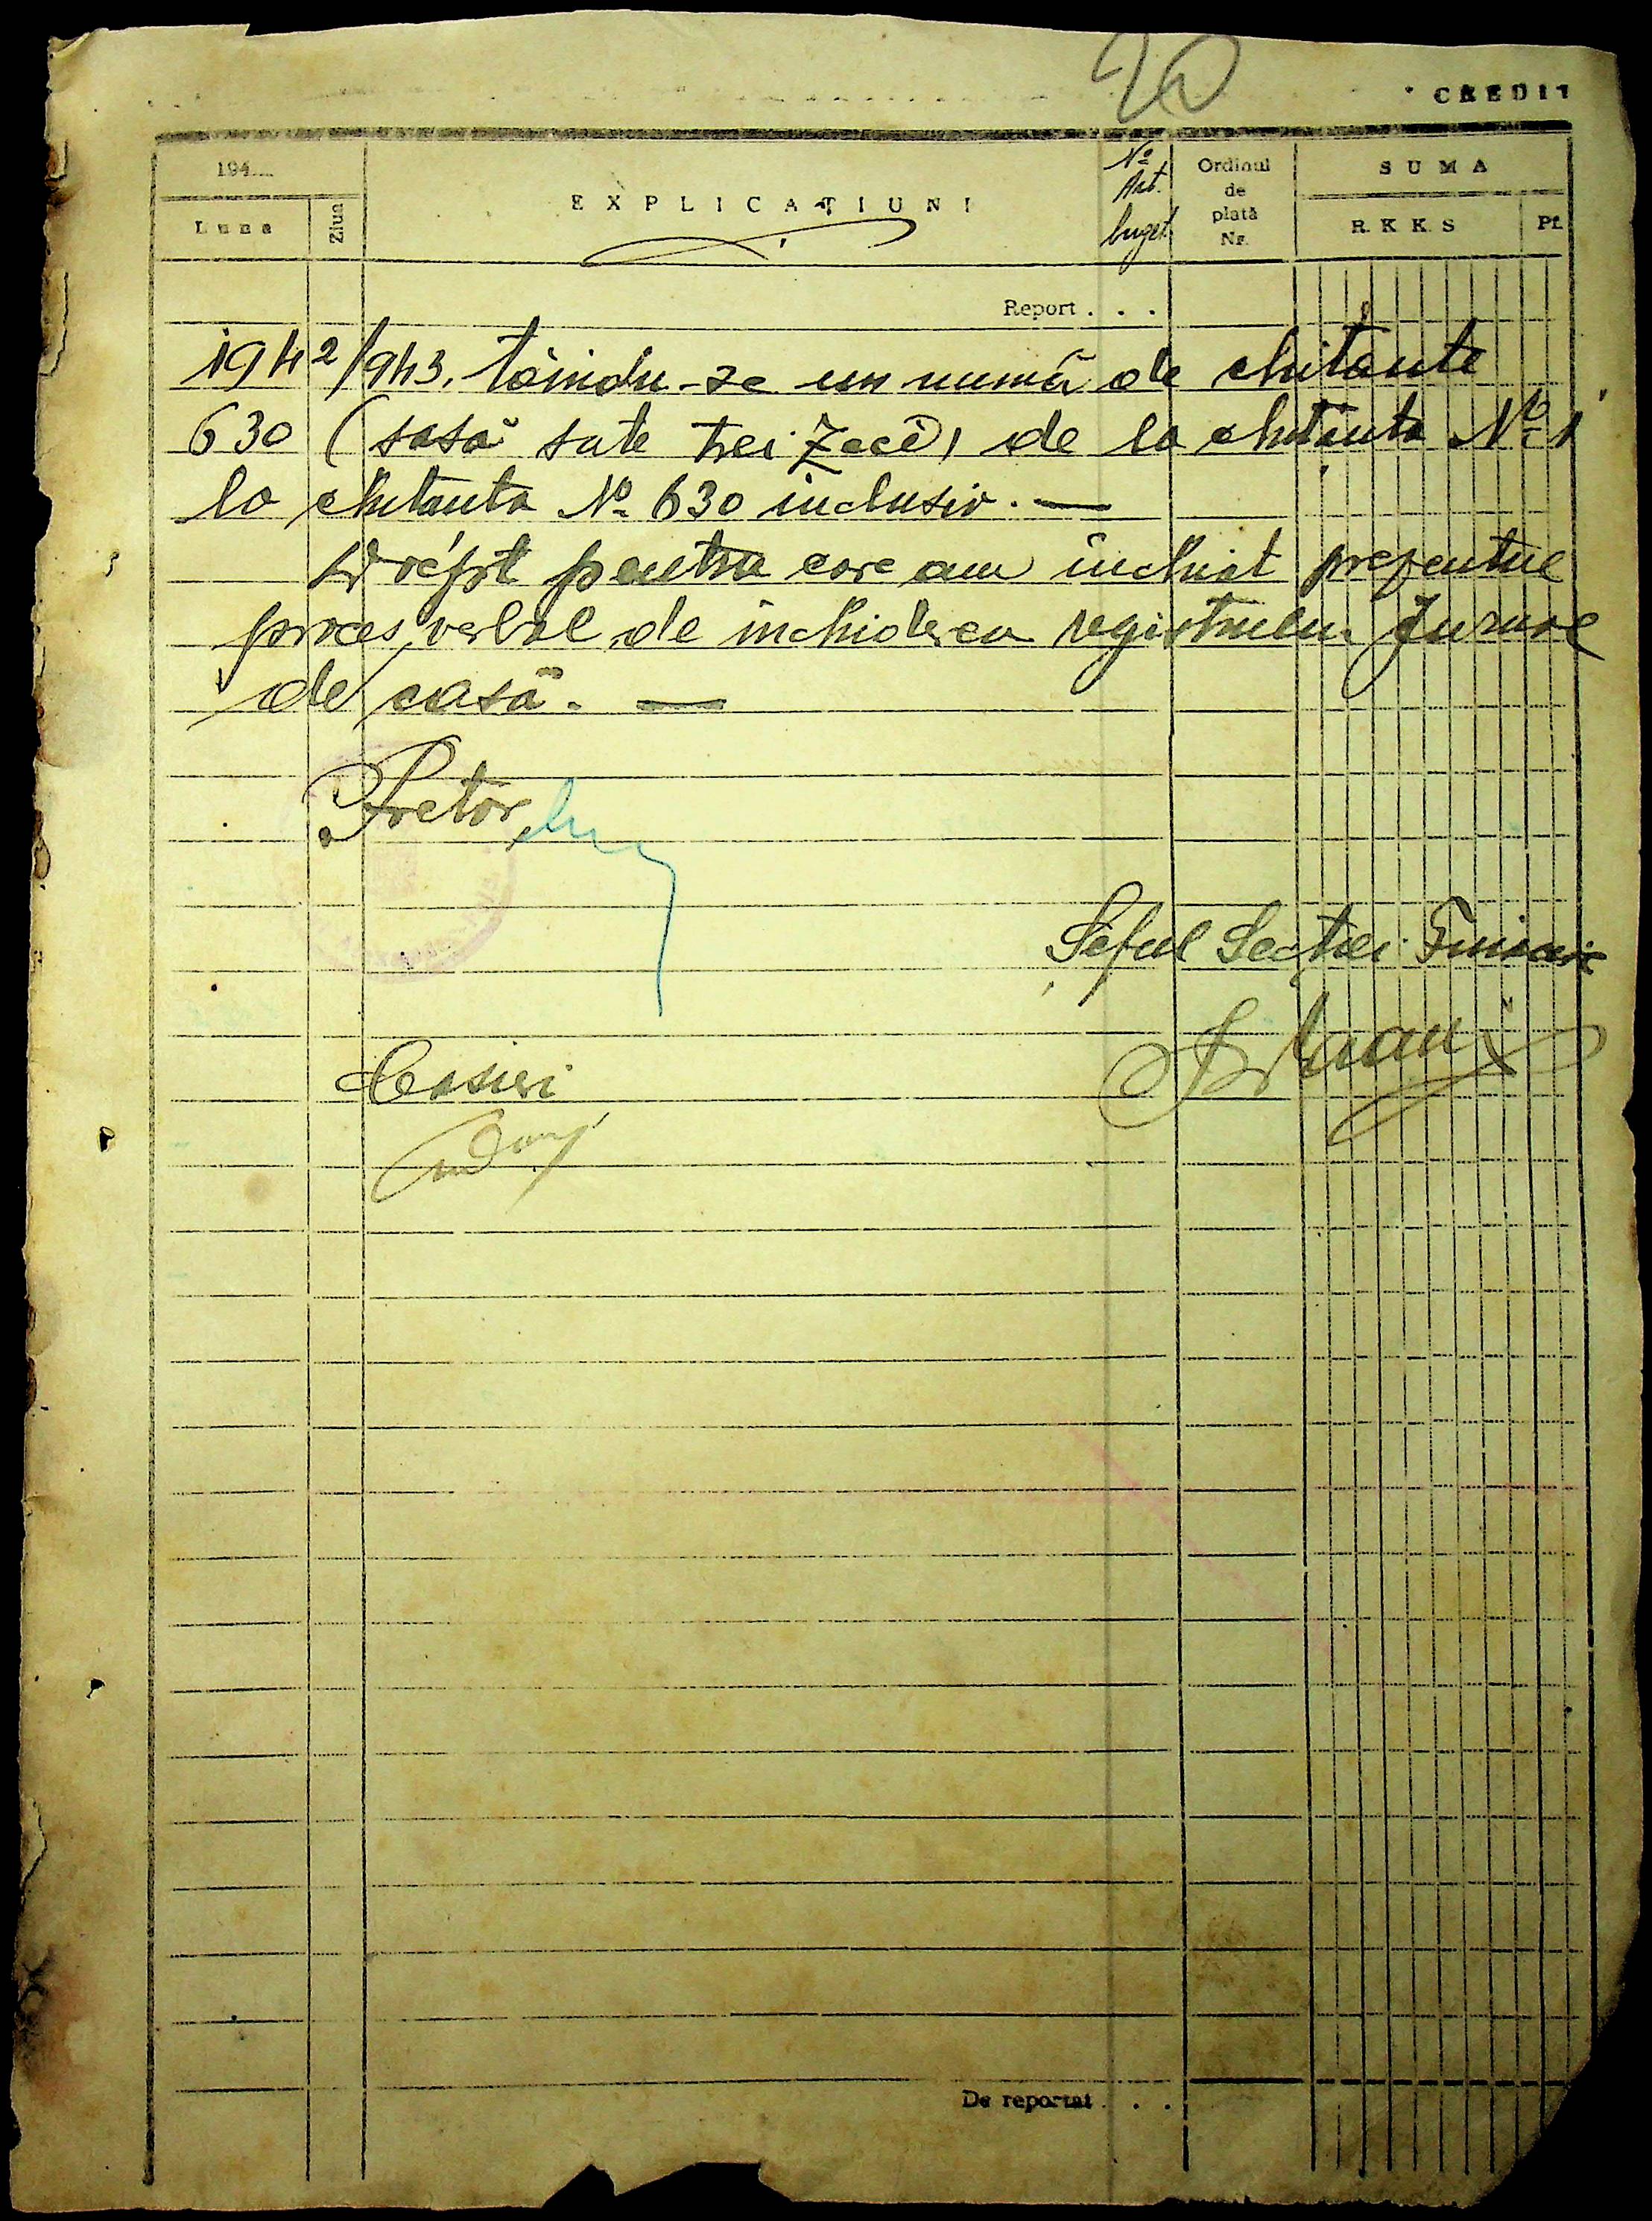 20
CREDIT
194....
EXPLICAȚIUNI
No Art. buget
Ordinul de plată Nr.
SUMA
Luna
Ziua
R. K. K. S
Pf.
Report . . .
1942/943. tăindu-se un număr de chitante
630 (sasă sute trei zeci) de la chitanta No 1
la chitanta No 630 inclusiv. —
Drept pentru care am inchiat prezentul
proces verbal de inchiderea registrului Jurnal
de casă. —
Pretor,
Șeful Secției Financiare
Casieri
De reportat . . .